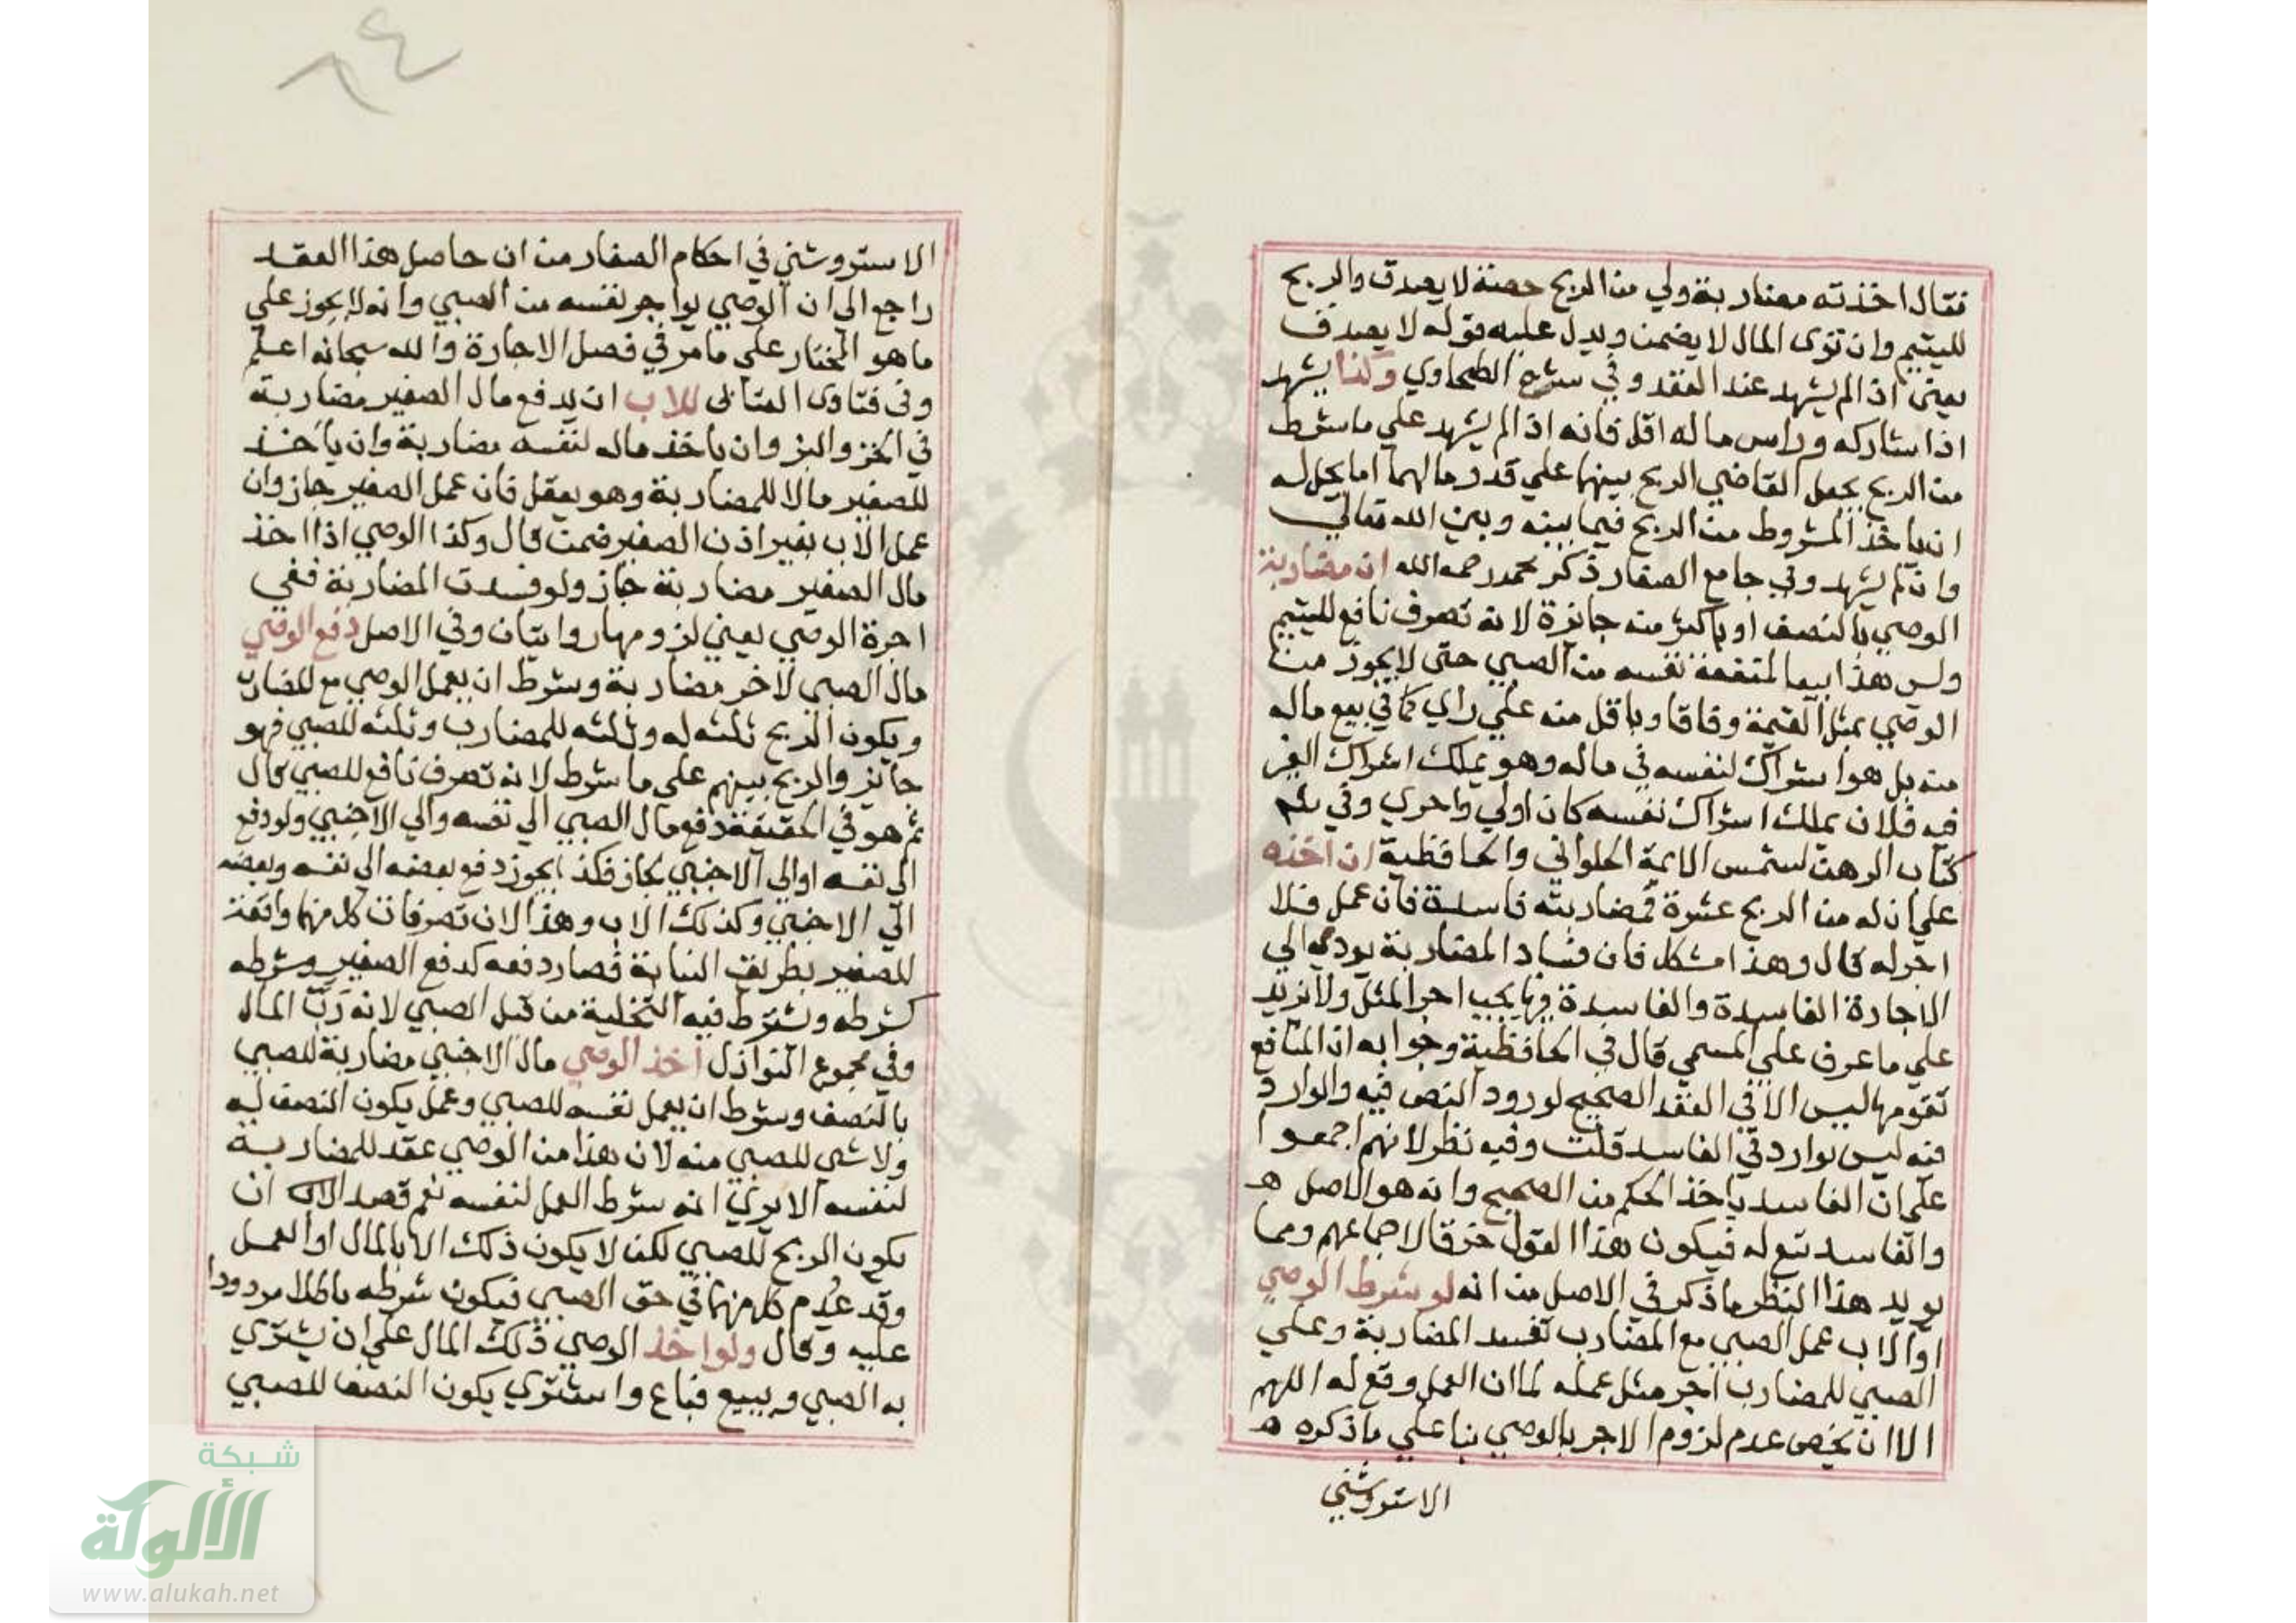 فقال اخذته مضاربة ولي من الربح حصة لا يصدق والربح
لليتيم وان توى المال لا يضمن ويدل عليه قوله لا يصدق
يعني اذا لم يشهد عند العقد وفي شرح الطحاوي وكذا يشهد
اذا شاركه وراس ماله اقل فانه اذا لم يشهد علي ما شرط
من الربح يجعل القاضي الربح بينهما علي قدر مالهما اما يحل له
ان ياخذ المشروط من الربح فيما بينه وبين الله تعالي
وان لم يشهد وفي جامع الصغار ذكر محمد رحمه الله ان مضاربة
الوصي بالنصف او باكثر منه جائزة لانه تصرف نافع لليتيم
وليس هذا بيعا لمنفعة نفسه من الصبي حتى لا يجوز من
الوصي بمثل القيمة وفاقا وباقل منه علي راي كما في بيع ماله
منه بل هو اشراك لنفسه في ماله وهو يملك اشراك الغير
فيه فلان يملك اشراك نفسه كان اولي واحري وفي
كتاب الرهن لشمس الايمة الحلواني والحافظية ان اخذه
علي ان له من الربح عشرة فمضاربته فاسدة فان عمل فلا
اجر له قال وهذا مشكل فان فساد المضاربة يودي الي
الاجارة الفاسدة والفاسدة فيها يجب اجر المثل ولا نزيد
علي ما عرف علي المسمي قال في الحافظية وجوابه ان المنافع
تقومها ليس الا في العقد الصحيح لورود النص فيه والوارد
فيه ليس بوارد في الفاسد قلت وفيه نظر لانهم اجمعوا
علي ان الفاسد ياخذ الحكم من الصحيح وانه هو الاصل هـ
والفاسد تبع له فيكون هذا القول خرقا لاجماعهم ومما
يويد هذا النظر ما ذكر في الاصل من انه لو شرط الوصي
او الاب عمل الصبي مع المضارب تفسد المضاربة وعلي
الصبي للمضارب اجر مثل عمله لما ان العمل وقع له اللهم
الا ان يخص عدم لزوم الاجر بالوصي بنا علي ما ذكره هـ
الاستروشني
الاستروشني في احكام الصغار من ان حاصل هذا العقد
راجع الي ان الوصي يواجر نفسه من الصبي وانه لا يجوز علي
ما هو المختار علي ما مر في فصل الاجارة والله سبحانه اعلم
وفي فتاوى العتابي للاب ان يدفع مال الصغير مضاربة
في الخز والبز وان ياخذ ماله لنفسه مضاربة وان ياخذ
للصغير مالا للمضاربة وهو يعقل فان عمل الصغير جاز وان
عمل الاب بغير اذن الصغير ضمن قال وكذا الوصي اذا اخذ
مال الصغير مضاربة جاز ولو فسدت المضاربة ففي
اجرة الوصي يعني لزومها روايتان وفي الاصل دفع الوصي
مال الصبي لاخر مضاربة وشرط ان يعمل الوصي مع المضارب
ويكون الربح ثلثه له وثلثه للمضارب وثلثه للصبي فهو
جايز والربح بينهم علي ما شرط لانه تصرف نافع للصبي قال
ثم هو في الحقيقة دفع مال الصبي الي نفسه والي الاجنبي ولو دفع
الي نفسه او الي الاجنبي لجاز فكذا يجوز دفع بعضه الي نفسه وبعضه
الي الاجنبي وكذلك الاب وهذا لان تصرفات كل منهما واقعة
للصغير بطريق النيابة فصار دفعه كدفع الصغير وشرطه
كشرطه ويشترط فيه التخلية من قبل الصبي لانه رب المال
وفي مجموع النوازل اخذ الوصي مال الاجنبي مضاربة للصبي
بالنصف وشرط ان يعمل نفسه للصبي وعمل يكون النصف له
ولا شي للصبي منه لان هذا من الوصي عقد للمضاربة
لنفسه الا يري انه شرط العمل لنفسه نعم قصد ان
يكون الربح للصبي لكن لا يكون ذلك الا بالمال او العمل
وقد عدم كل منهما في حق الصبي فيكون شرطه باطلا مردودا
عليه وقال ولو اخذ الوصي ذلك المال علي ان يشتري
به الصبي ويبيع فباع واشتري يكون النصف للصبي
شبكة
الألوكة
www.alukah.net